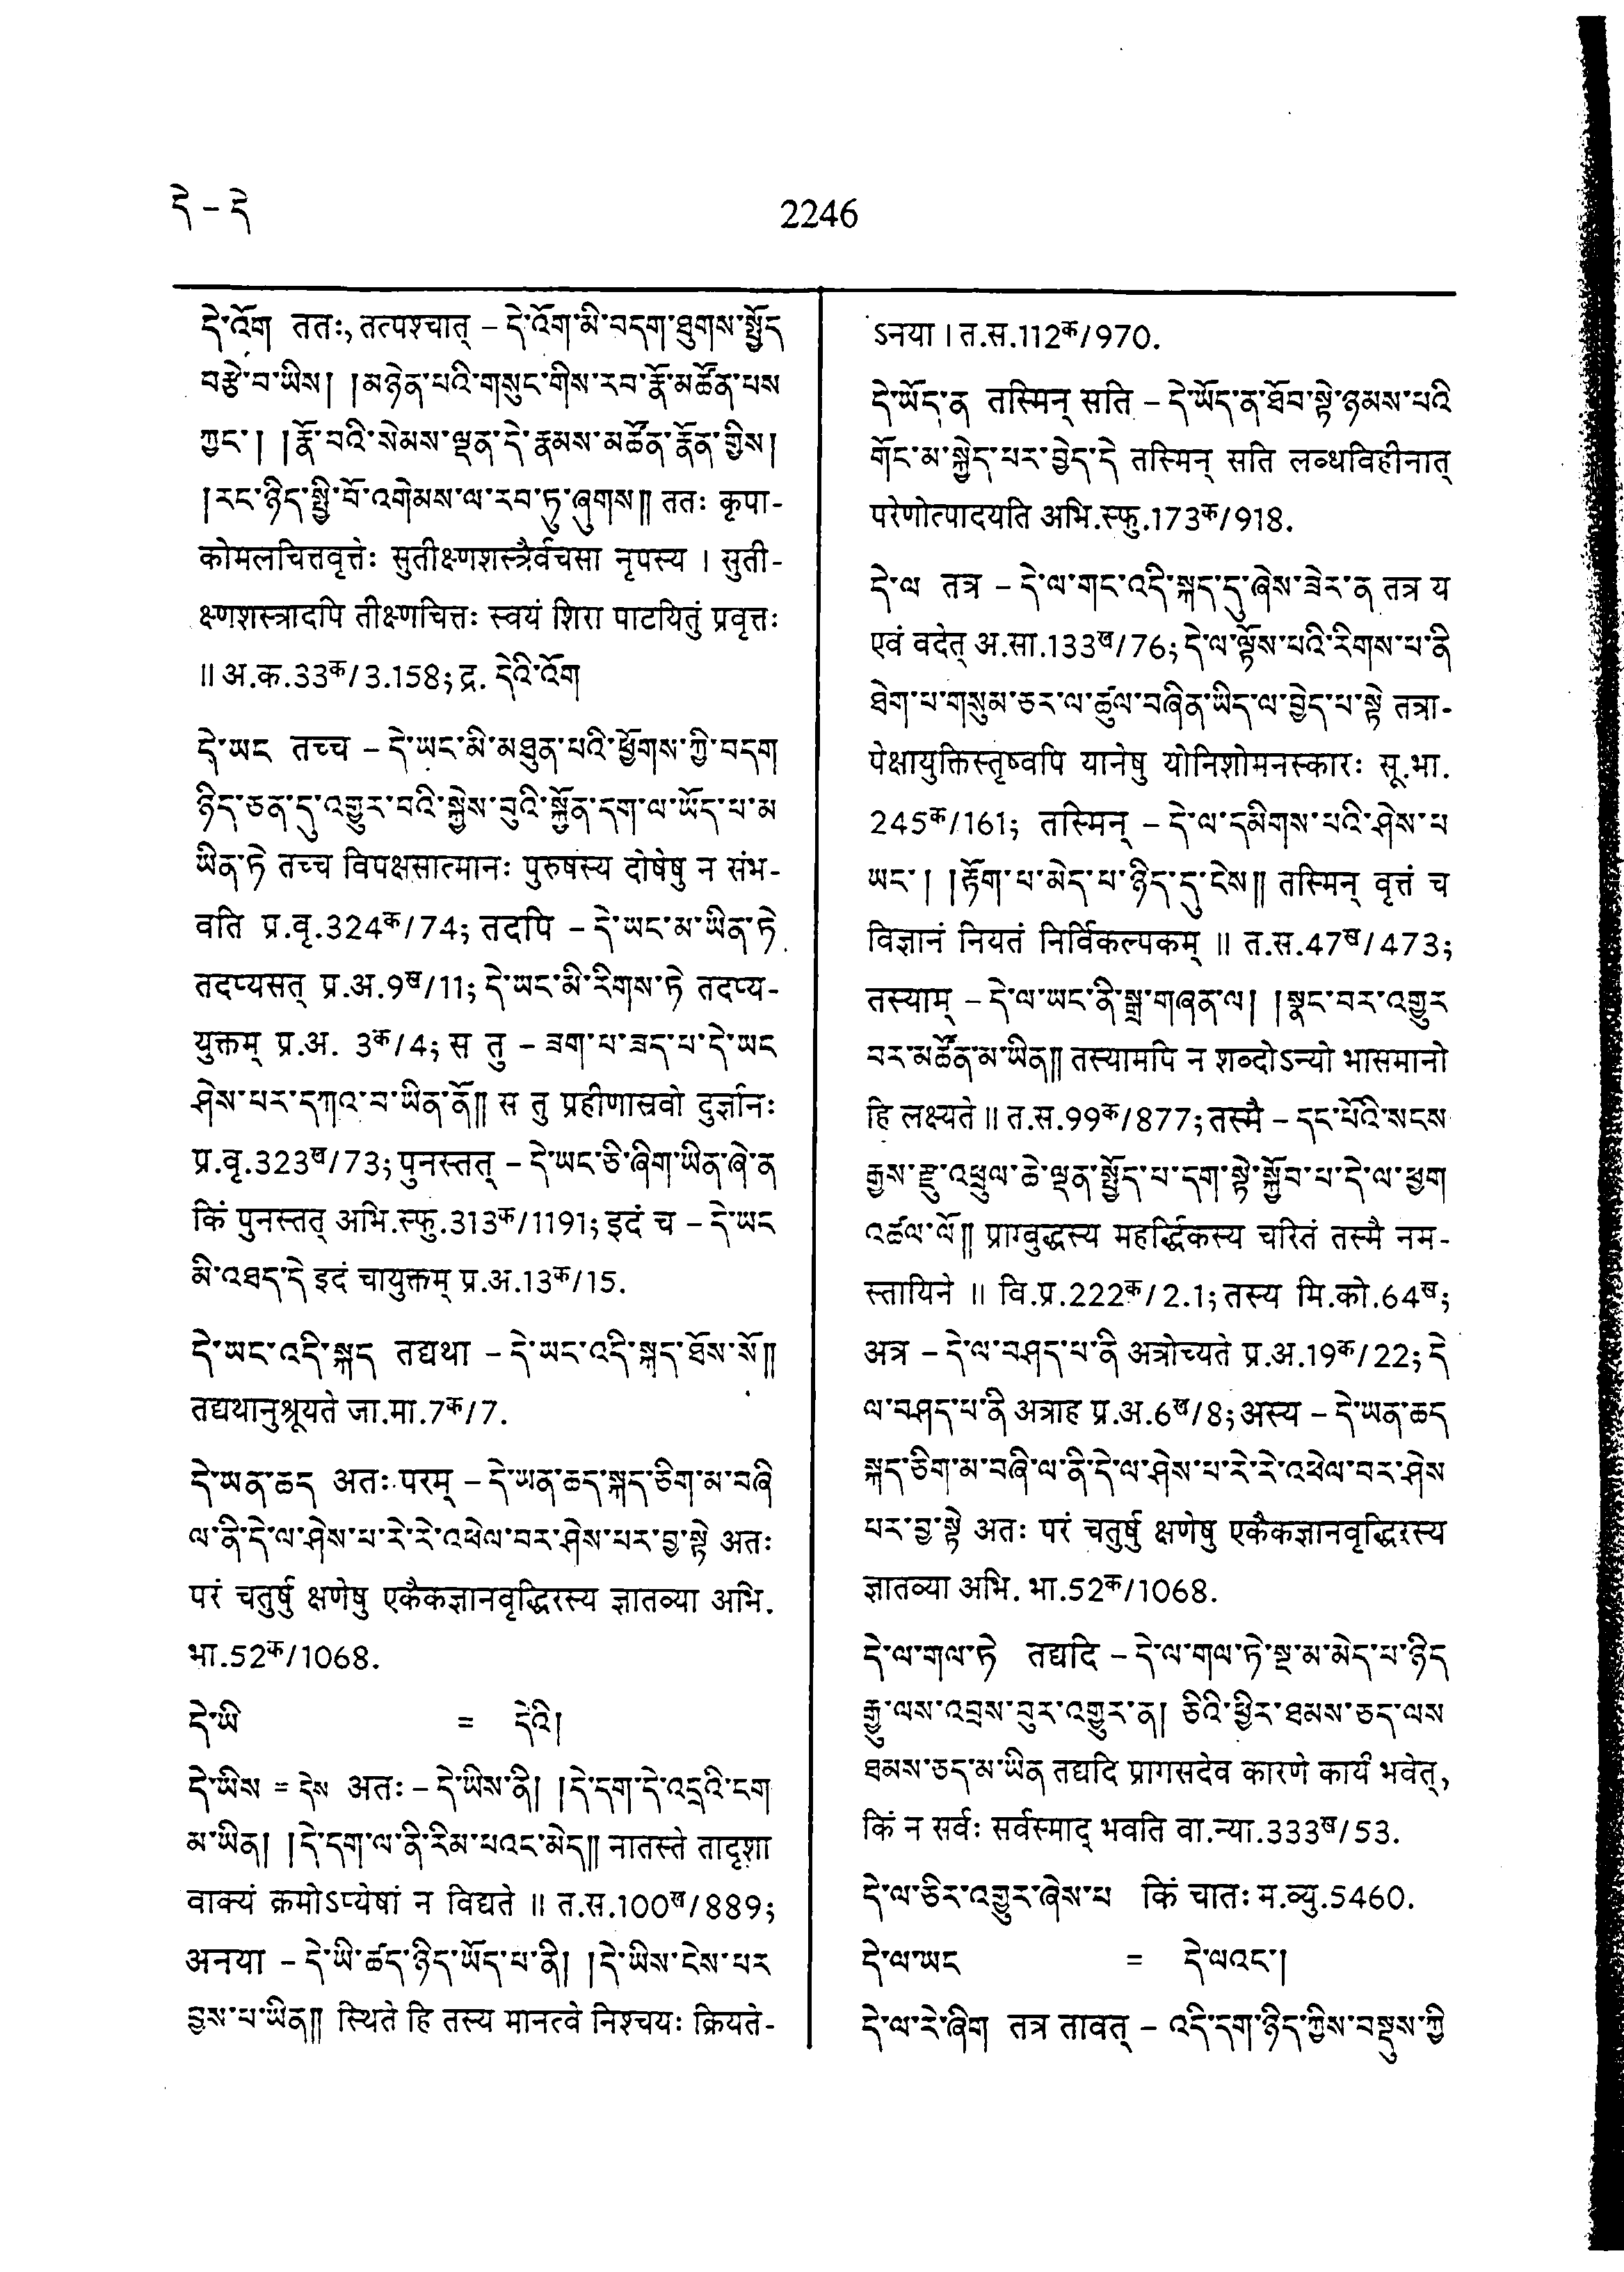 དེ – དེ
2246
དེ་འོག ततः, तत्पश्चात् – དེ་འོག་མི་བདག་ཐུགས་སྤྱོད
བརྩེ་བ་ཡིས། །མཉེན་པའི་གསུང་གིས་རབ་རྣོ་མཚོན་པས
ཀྱང་། །རྣོ་བའི་སེམས་ལྡན་དེ་རྣམས་མཚོན་རྣོན་གྱིས།
།རང་ཉིད་སྤྱི་བོ་འགེམས་ལ་རབ་ཏུ་ཞུགས༎ ततः कृपा-
कोमलचित्तवृत्तेः सुतीक्ष्णशस्त्रैर्वचसा नृपस्य । सुती-
क्ष्णशस्त्रादपि तीक्ष्णचित्तः स्वयं शिरा पाटयितुं प्रवृत्तः
॥ अ.क.33क/3.158; द्र. དེའི་འོག
དེ་ཡང तच्च – དེ་ཡང་མི་མཐུན་པའི་ཕྱོགས་ཀྱི་བདག
ཉིད་ཅན་དུ་འགྱུར་བའི་སྐྱེས་བུའི་སྐྱོན་དག་ལ་ཡོད་པ་མ
ཡིན་ཏེ तच्च विपक्षसात्मानः पुरुषस्य दोषेषु न संभ-
वति प्र.वृ.324क/74; तदपि – དེ་ཡང་མ་ཡིན་ཏེ
तदप्यसत् प्र.अ.9ख/11; དེ་ཡང་མི་རིགས་ཏེ तदप्य-
युक्तम् प्र.अ. 3क/4; स तु – ཟག་པ་ཟད་པ་དེ་ཡང
ཤེས་པར་དཀའ་བ་ཡིན་ནོ༎ स तु प्रहीणास्रवो दुर्ज्ञानः
प्र.वृ.323ख/73; पुनस्तत् – དེ་ཡང་ཅི་ཞིག་ཡིན་ཞེ་ན
किं पुनस्तत् अभि.स्फु.313क/1191; इदं च – དེ་ཡང
མི་འཐད་དེ इदं चायुक्तम् प्र.अ.13क/15.
དེ་ཡང་འདི་སྐད तद्यथा – དེ་ཡང་འདི་སྐད་ཐོས་སོ༎
तद्यथानुश्रूयते जा.मा.7क/7.
དེ་ཡན་ཆད अतः परम् – དེ་ཡན་ཆད་སྐད་ཅིག་མ་བཞི
ལ་ནི་དེ་ལ་ཤེས་པ་རེ་རེ་འཕེལ་བར་ཤེས་པར་བྱ་སྟེ अतः
परं चतुर्षु क्षणेषु एकैकज्ञानवृद्धिरस्य ज्ञातव्या अभि.
भा.52क/1068.
དེ་ཡི = དེའི།
དེ་ཡིས = དེས अतः – དེ་ཡིས་ནི། །དེ་དག་དེ་འདྲའི་ངག
མ་ཡིན། །དེ་དག་ལ་ནི་རིམ་པའང་མེད༎ नातस्ते तादृशा
वाक्यं क्रमोऽप्येषां न विद्यते ॥ त.स.100ख/889;
अनया – དེ་ཡི་ཚད་ཉིད་ཡོད་པ་ནི། །དེ་ཡིས་ངེས་པར
བྱས་པ་ཡིན༎ स्थिते हि तस्य मानत्वे निश्चयः क्रियते-
ऽनया । त.स.112क/970.
དེ་ཡོད་ན तस्मिन् सति – དེ་ཡོད་ན་ཐོབ་སྟེ་ཉམས་པའི
གོང་མ་སྐྱེད་པར་བྱེད་དེ तस्मिन् सति लब्धविहीनात्
परेणोत्पादयति अभि.स्फु.173क/918.
དེ་ལ तत्र – དེ་ལ་གང་འདི་སྐད་དུ་ཞེས་ཟེར་ན तत्र य
एवं वदेत् अ.सा.133ख/76; དེ་ལ་ལྟོས་པའི་རིགས་པ་ནི
ཐེག་པ་གསུམ་ཅར་ལ་ཚུལ་བཞིན་ཡིད་ལ་བྱེད་པ་སྟེ तत्रा-
पेक्षायुक्तिस्तृष्वपि यानेषु योनिशोमनस्कारः सू.भा.
245क/161; तस्मिन् – དེ་ལ་དམིགས་པའི་ཤེས་པ
ཡང་། །རྟོག་པ་མེད་པ་ཉིད་དུ་ངེས༎ तस्मिन् वृत्तं च
विज्ञानं नियतं निर्विकल्पकम् ॥ त.स.47ख/473;
तस्याम् – དེ་ལ་ཡང་ནི་སྒྲ་གཞན་ལ། །སྣང་བར་འགྱུར
བར་མཚོན་མ་ཡིན༎ तस्यामपि न शब्दोऽन्यो भासमानो
हि लक्ष्यते ॥ त.स.99क/877; तस्मै – དང་པོའི་སངས
རྒྱས་རྫུ་འཕྲུལ་ཆེ་ལྡན་སྤྱོད་པ་དག་སྟེ་སྐྱོབ་པ་དེ་ལ་ཕྱག
འཚལ་ལོ༎ प्राग्बुद्धस्य महर्द्धिकस्य चरितं तस्मै नम-
स्तायिने ॥ वि.प्र.222क/2.1; तस्य मि.को.64ख;
अत्र – དེ་ལ་བཤད་པ་ནི अत्रोच्यते प्र.अ.19क/22; དེ
ལ་བཤད་པ་ནི अत्राह प्र.अ.6ख/8; अस्य – དེ་ཡན་ཆད
སྐད་ཅིག་མ་བཞི་ལ་ནི་དེ་ལ་ཤེས་པ་རེ་རེ་འཕེལ་བར་ཤེས
པར་བྱ་སྟེ अतः परं चतुर्षु क्षणेषु एकैकज्ञानवृद्धिरस्य
ज्ञातव्या अभि. भा.52क/1068.
དེ་ལ་གལ་ཏེ तद्यदि – དེ་ལ་གལ་ཏེ་སྔ་མ་མེད་པ་ཉིད
རྒྱུ་ལས་འབྲས་བུར་འགྱུར་ན། ཅིའི་ཕྱིར་ཐམས་ཅད་ལས
ཐམས་ཅད་མ་ཡིན तद्यदि प्रागसदेव कारणे कार्यं भवेत्,
किं न सर्वः सर्वस्माद् भवति वा.न्या.333ख/53.
དེ་ལ་ཅིར་འགྱུར་ཞེས་པ किं चातः म.व्यु.5460.
དེ་ལ་ཡང = དེ་ལའང་།
དེ་ལ་རེ་ཞིག तत्र तावत् – འདི་དག་ཉིད་ཀྱིས་བསྡུས་ཀྱི